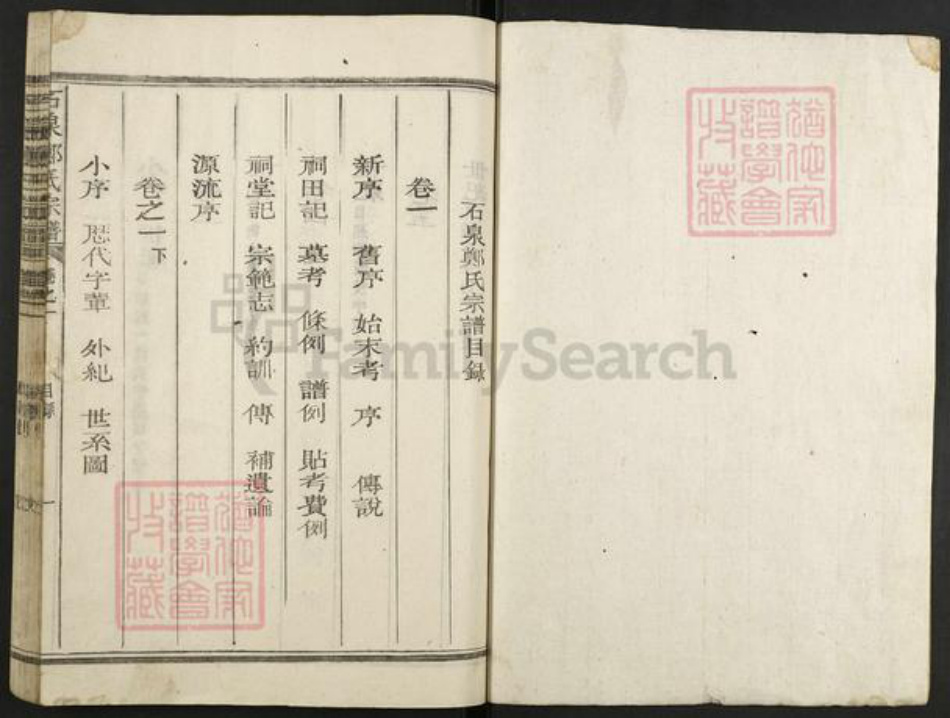 石泉鄭氏宗譜目錄
卷一
新序 舊序 始末考 序 傳說
祠田記 墓考 條例 譜例 貼考費例
祠堂記 宗範志 約訓 傳 補遺論
源流序
卷之一下
小序 歷代字軰 外紀 世系圖
石泉鄭氏宗譜 卷之一 目錄 一
FamilySearch
譜學會
收藏
譜學會
收藏